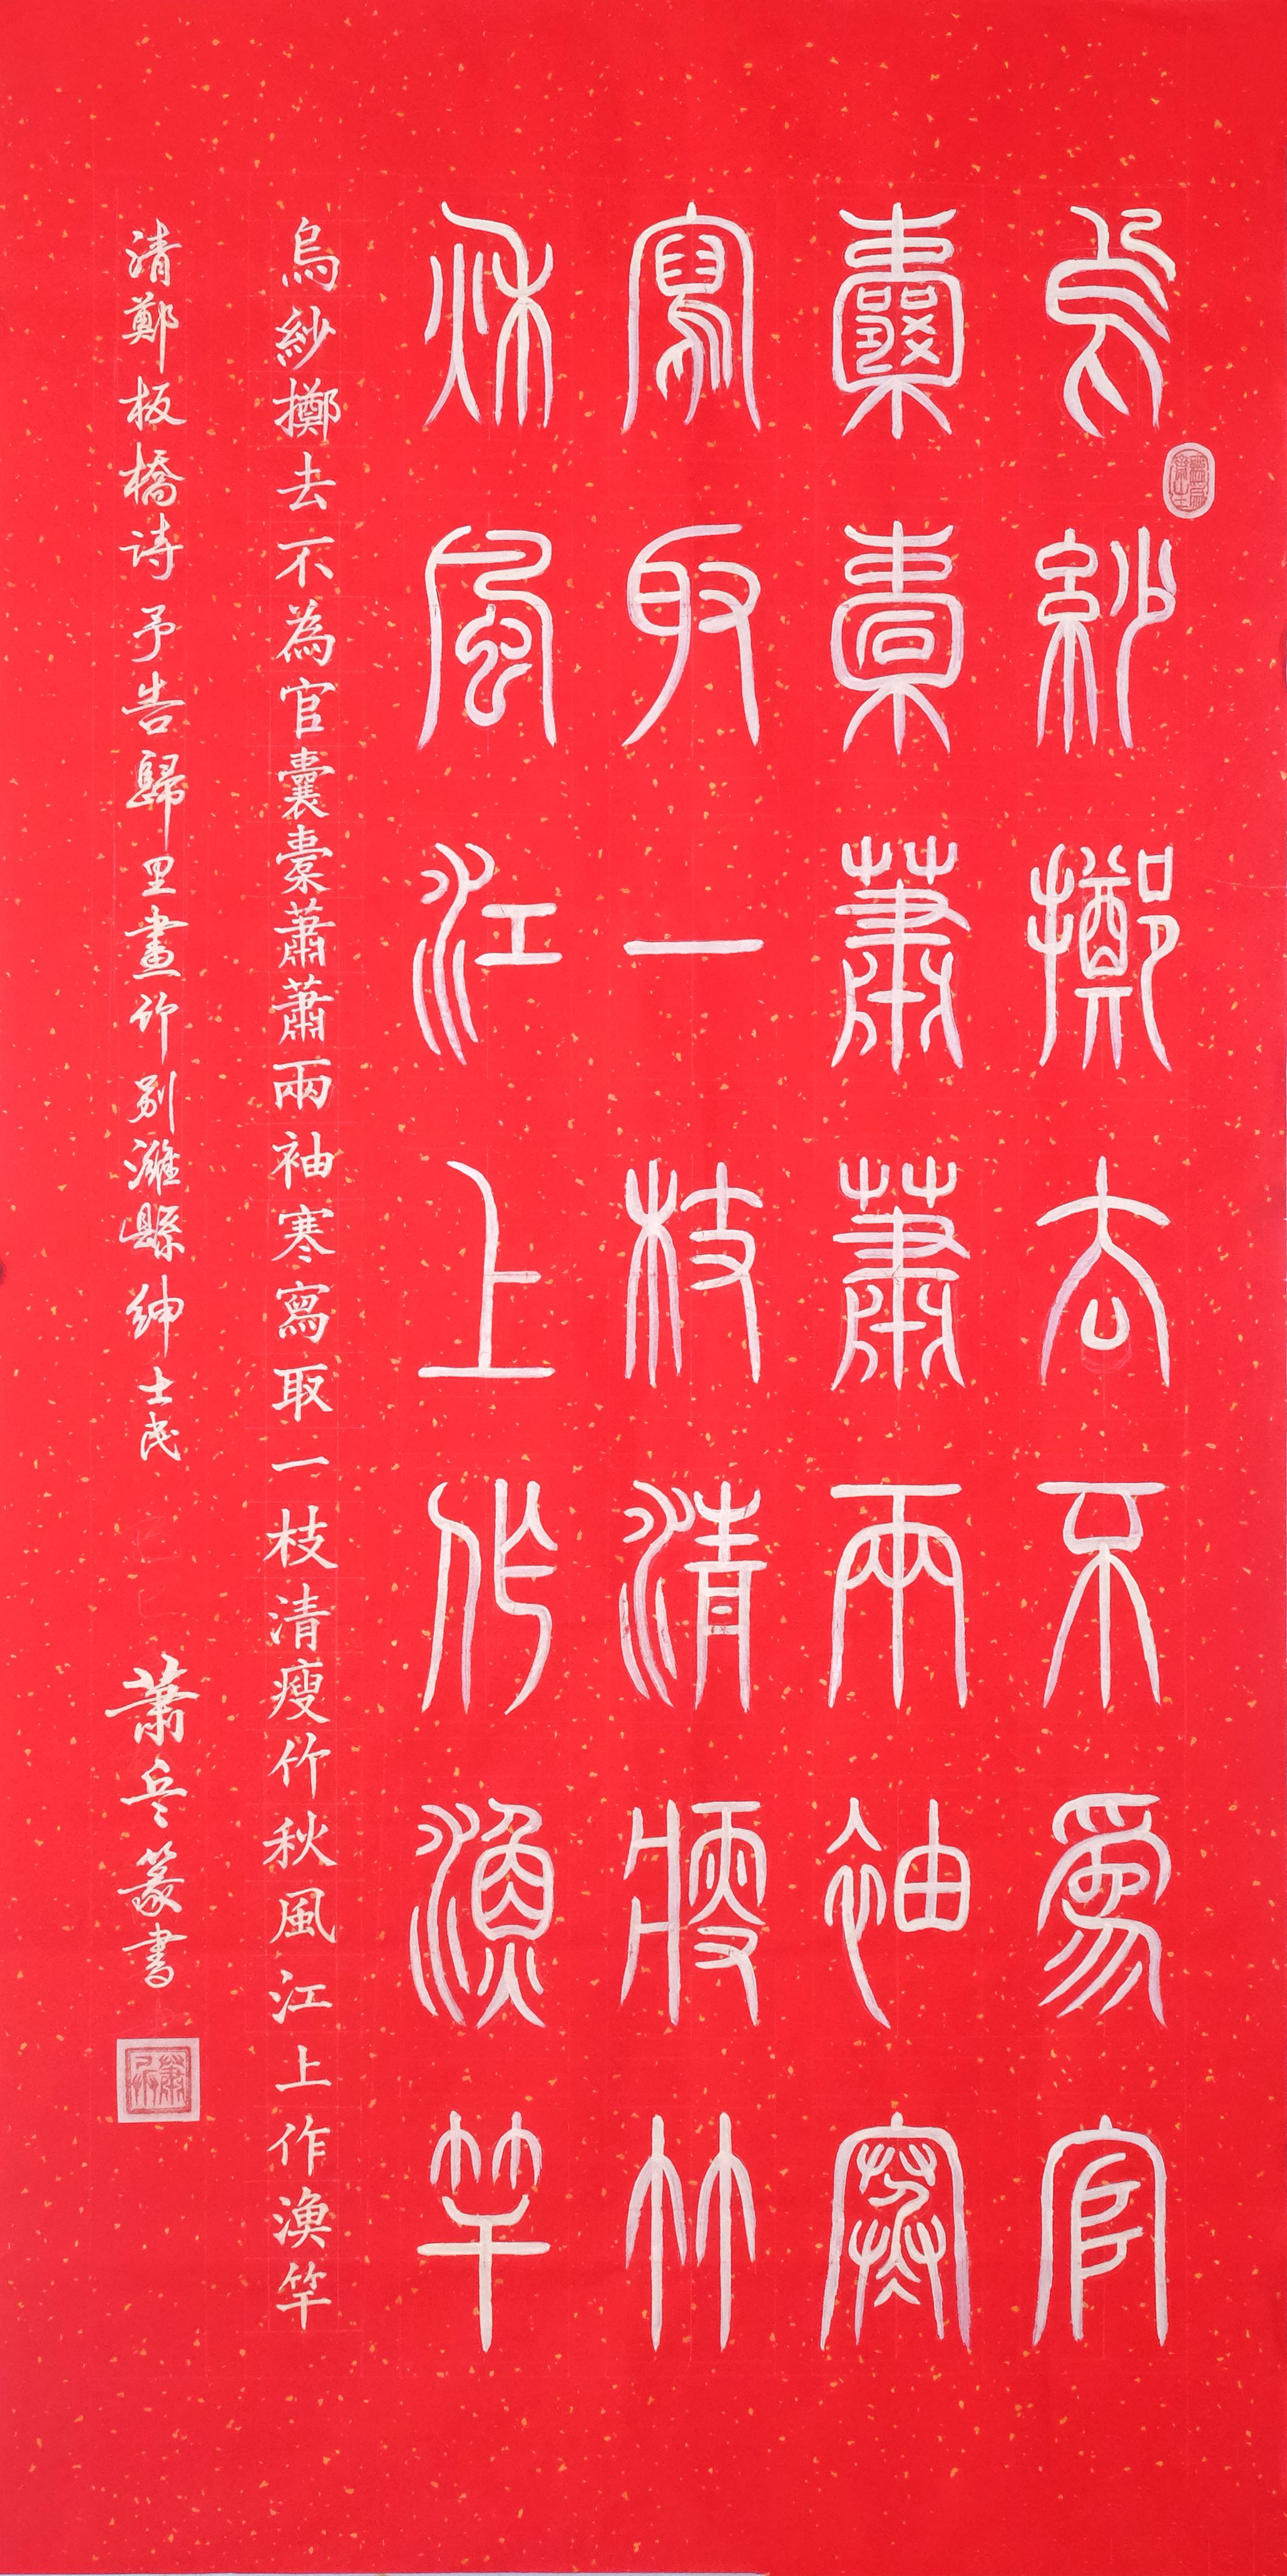 烏紗擲去不為官
囊橐蕭蕭兩袖寒
寫取一枝清瘦竹
秋風江上作漁竿
烏紗擲去不為官囊橐蕭蕭兩袖寒寫取一枝清瘦竹秋風江上作漁竿
清鄭板橋诗予告歸里畫竹别濰縣紳士民
蕭兵篆書